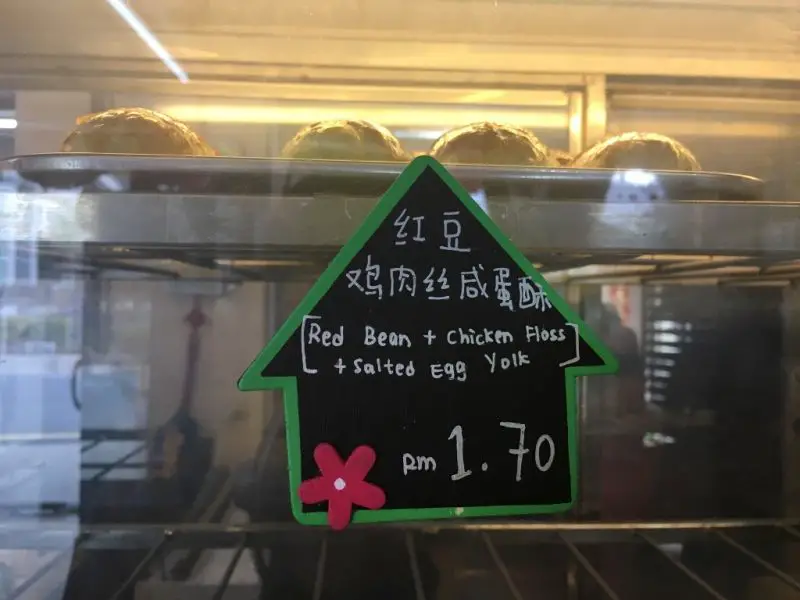 红豆
鸡肉丝咸蛋酥
[Red Bean + Chicken Floss
+ Salted Egg Yolk]
RM 1.70